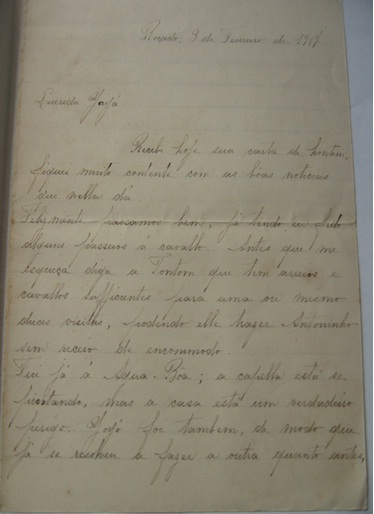 3 de Fevereiro de 1917
Querida Yayá
Recebi hoje sua carta de hontem,
fiquei muito contente com as boas noticias
que nella dá.
Felizmente passamos bem, já tendo eu feito
alguns passeios á cavallo. Antes que me
esqueça diga a Tontom que tem arreios e
cavallos sufficientes para uma ou mesmo
duas visitas, podendo elle trazer Antoninho
sem receio de encommodo.
Fui já á Agua-Bôa; a cavalla está se
, mas a casa está um verdadeiro
perigo. Yoyô foi tambem, de modo que
já se resolveu a fazer a outra quanto antes,